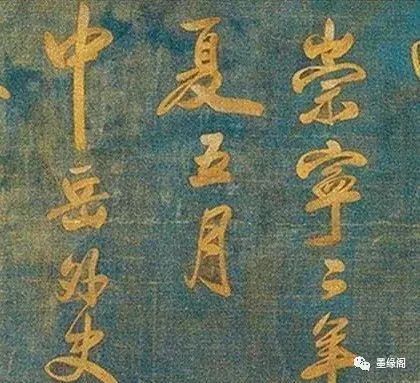 崇寧二年
夏五月
中岳外史
墨缘阁